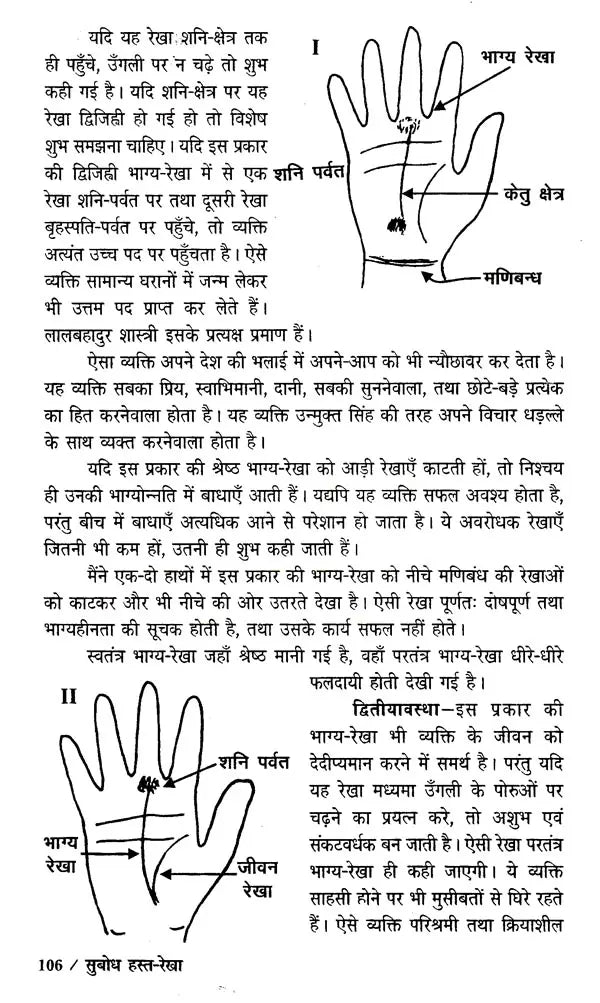 यदि यह रेखा शनि-क्षेत्र तक
ही पहुँचे, उँगली पर न चढ़े तो शुभ
कही गई है। यदि शनि-क्षेत्र पर यह
रेखा द्विजिह्वी हो गई हो तो विशेष
शुभ समझना चाहिए। यदि इस प्रकार
की द्विजिह्वी भाग्य-रेखा में से एक
रेखा शनि-पर्वत पर तथा दूसरी रेखा
बृहस्पति-पर्वत पर पहुँचे, तो व्यक्ति
अत्यंत उच्च पद पर पहुँचता है। ऐसे
व्यक्ति सामान्य घरानों में जन्म लेकर
भी उत्तम पद प्राप्त कर लेते हैं।
लालबहादुर शास्त्री इसके प्रत्यक्ष प्रमाण हैं।
I
भाग्य रेखा
शनि पर्वत
केतु क्षेत्र
मणिबन्ध
ऐसा व्यक्ति अपने देश की भलाई में अपने-आप को भी न्यौछावर कर देता है।
यह व्यक्ति सबका प्रिय, स्वाभिमानी, दानी, सबकी सुननेवाला, तथा छोटे-बड़े प्रत्येक
का हित करनेवाला होता है। यह व्यक्ति उन्मुक्त सिंह की तरह अपने विचार धड़ल्ले
के साथ व्यक्त करनेवाला होता है।
यदि इस प्रकार की श्रेष्ठ भाग्य-रेखा को आड़ी रेखाएँ काटती हों, तो निश्चय
ही उनकी भाग्योन्नति में बाधाएँ आती हैं। यद्यपि यह व्यक्ति सफल अवश्य होता है,
परंतु बीच में बाधाएँ अत्यधिक आने से परेशान हो जाता है। ये अवरोधक रेखाएँ
जितनी भी कम हों, उतनी ही शुभ कही जाती हैं।
मैंने एक-दो हाथों में इस प्रकार की भाग्य-रेखा को नीचे मणिबंध की रेखाओं
को काटकर और भी नीचे की ओर उतरते देखा है। ऐसी रेखा पूर्णतः दोषपूर्ण तथा
भाग्यहीनता की सूचक होती है, तथा उसके कार्य सफल नहीं होते।
स्वतंत्र भाग्य-रेखा जहाँ श्रेष्ठ मानी गई है, वहाँ परतंत्र भाग्य-रेखा धीरे-धीरे
फलदायी होती देखी गई है।
II
शनि पर्वत
भाग्य
रेखा
जीवन
रेखा
द्वितीयावस्था–इस प्रकार की
भाग्य-रेखा भी व्यक्ति के जीवन को
देदीप्यमान करने में समर्थ है। परंतु यदि
यह रेखा मध्यमा उँगली के पोरुओं पर
चढ़ने का प्रयत्न करे, तो अशुभ एवं
संकटवर्धक बन जाती है। ऐसी रेखा परतंत्र
भाग्य-रेखा ही कही जाएगी। ये व्यक्ति
साहसी होने पर भी मुसीबतों से घिरे रहते
हैं। ऐसे व्यक्ति परिश्रमी तथा क्रियाशील
106 / सुबोध हस्त-रेखा